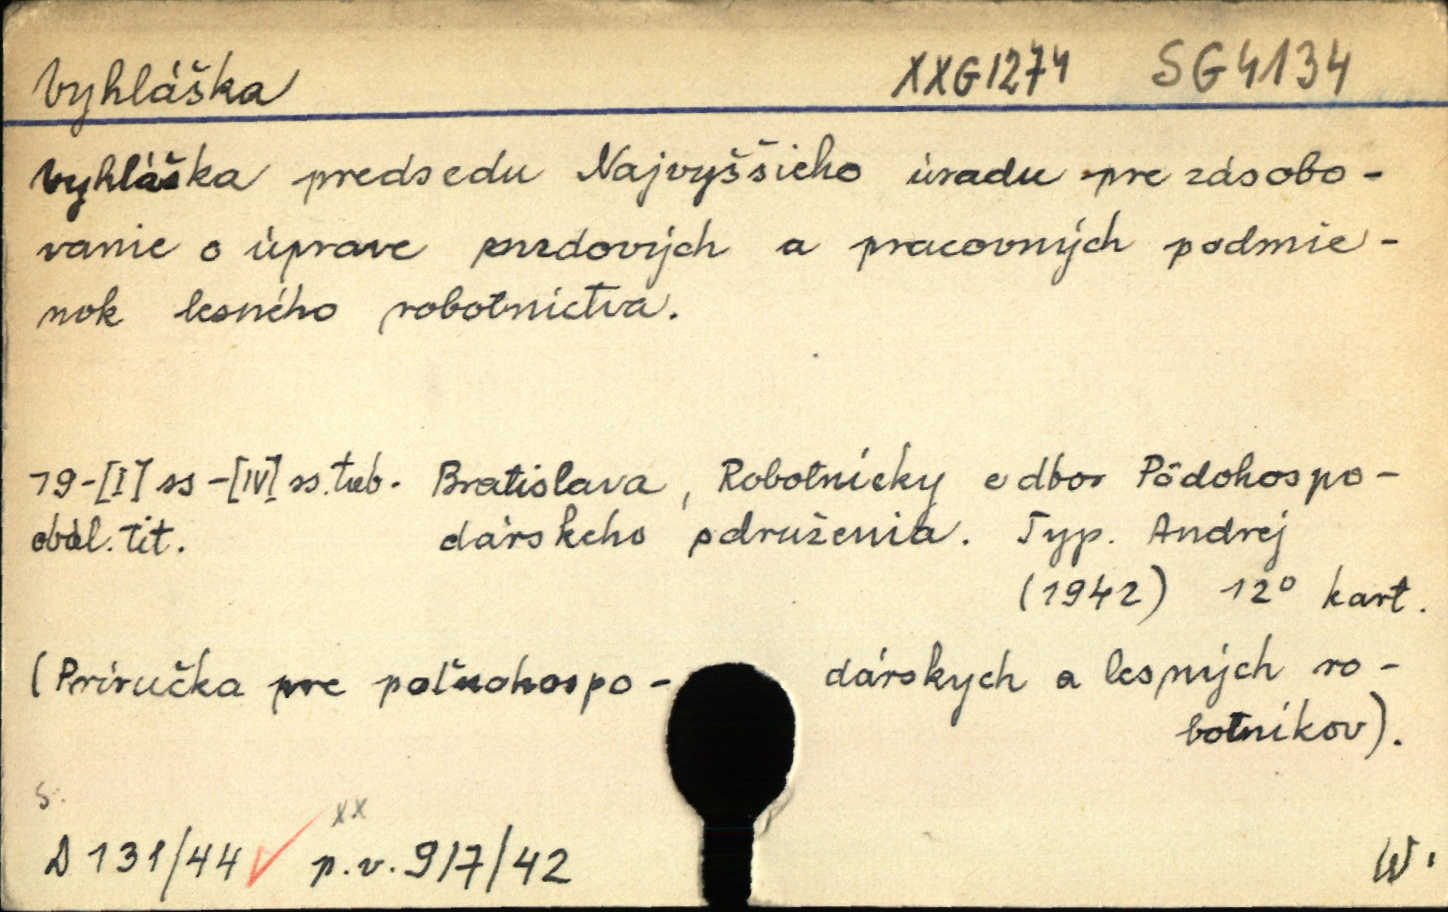 Vyhláška XXG1274 SG4134
Vyhláška predsedu Najvyššieho úradu pre zásobo-
vanie o úprave mzdových a pracovných podmie-
nok lesného robotníctva.
79-[I] ss-[IV] ss. tab. Bratislava, Robotnícky odbor Pôdohospo-
obál. tit. dárskeho združenia. Typ. Andrej
(1942) 12° kart.
(Príručka pre poľnohospo- dárskych a lesných ro-
botníkov).
S.
xx
D 131/44 p.v. 917/42 W.